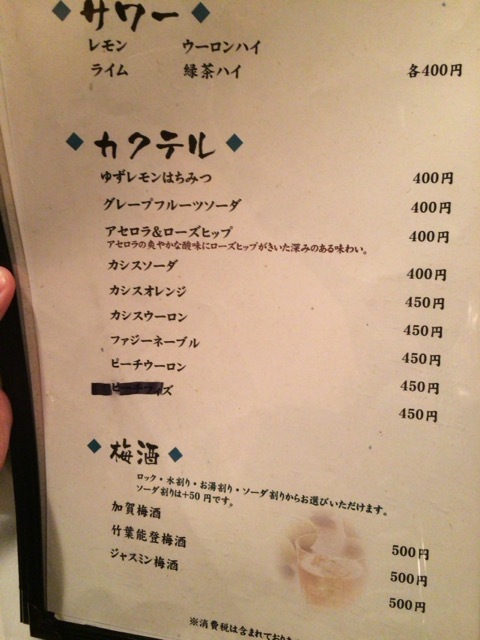 ◆ サワー ◆
レモン ウーロンハイ
ライム 緑茶ハイ 各400円
◆ カクテル ◆
ゆずレモンはちみつ 400円
グレープフルーツソーダ 400円
アセロラ&ローズヒップ 400円
アセロラの爽やかな酸味にローズヒップがきいた深みのある味わい。
カシスソーダ 400円
カシスオレンジ 450円
カシスウーロン 450円
ファジーネーブル 450円
ピーチウーロン 450円
ピーチフィズ 450円
◆ 梅酒 ◆
ロック・水割り・お湯割り・ソーダ割りからお選びいただけます。
ソーダ割りは+50円です。
加賀梅酒 500円
竹葉能登梅酒 500円
ジャスミン梅酒 500円
※消費税は含まれておりま